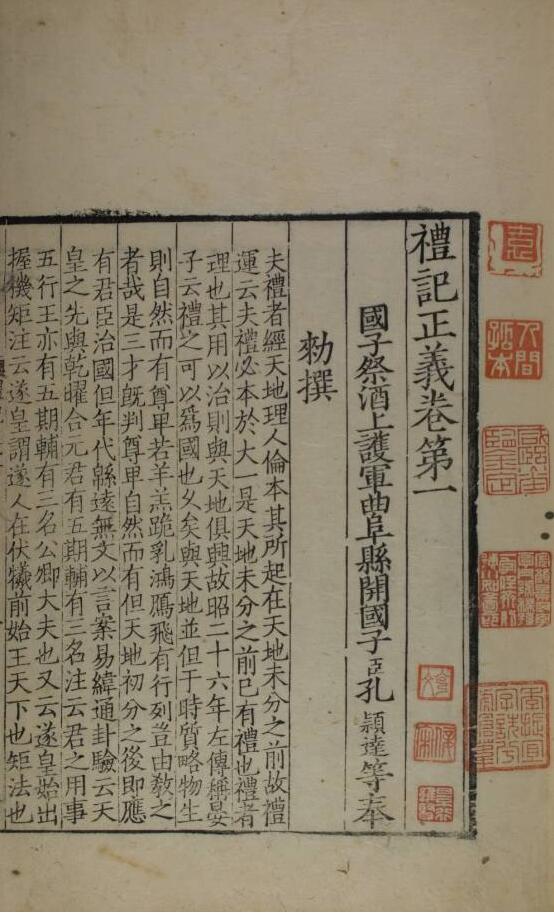 禮記正義卷第一
國子祭酒上護軍曲阜縣開國子臣孔穎達等奉
勑撰
夫禮者經天地理人倫本其所起在天地未分之前故禮
運云夫禮必本於大一是天地未分之前已有禮也禮者
理也其用以治則與天地俱興故昭二十六年左傳稱晏
子云禮之可以爲國也乆矣與天地並但于時質略物生
則自然而有尊卑若羊羔跪乳鴻鴈飛有行列豈由敎之
者哉是三才旣判尊卑自然而有但天地初分之後即應
有君臣治國但年代緜遠無文以言案易緯通卦驗云天
皇之先與乾曜合元君有五期輔有三名注云君之用事
五行王亦有五期輔有三名公卿大夫也又云遂皇始出
握機矩注云遂皇謂遂人在伏犧前始王天下也矩法也
人間
孤本